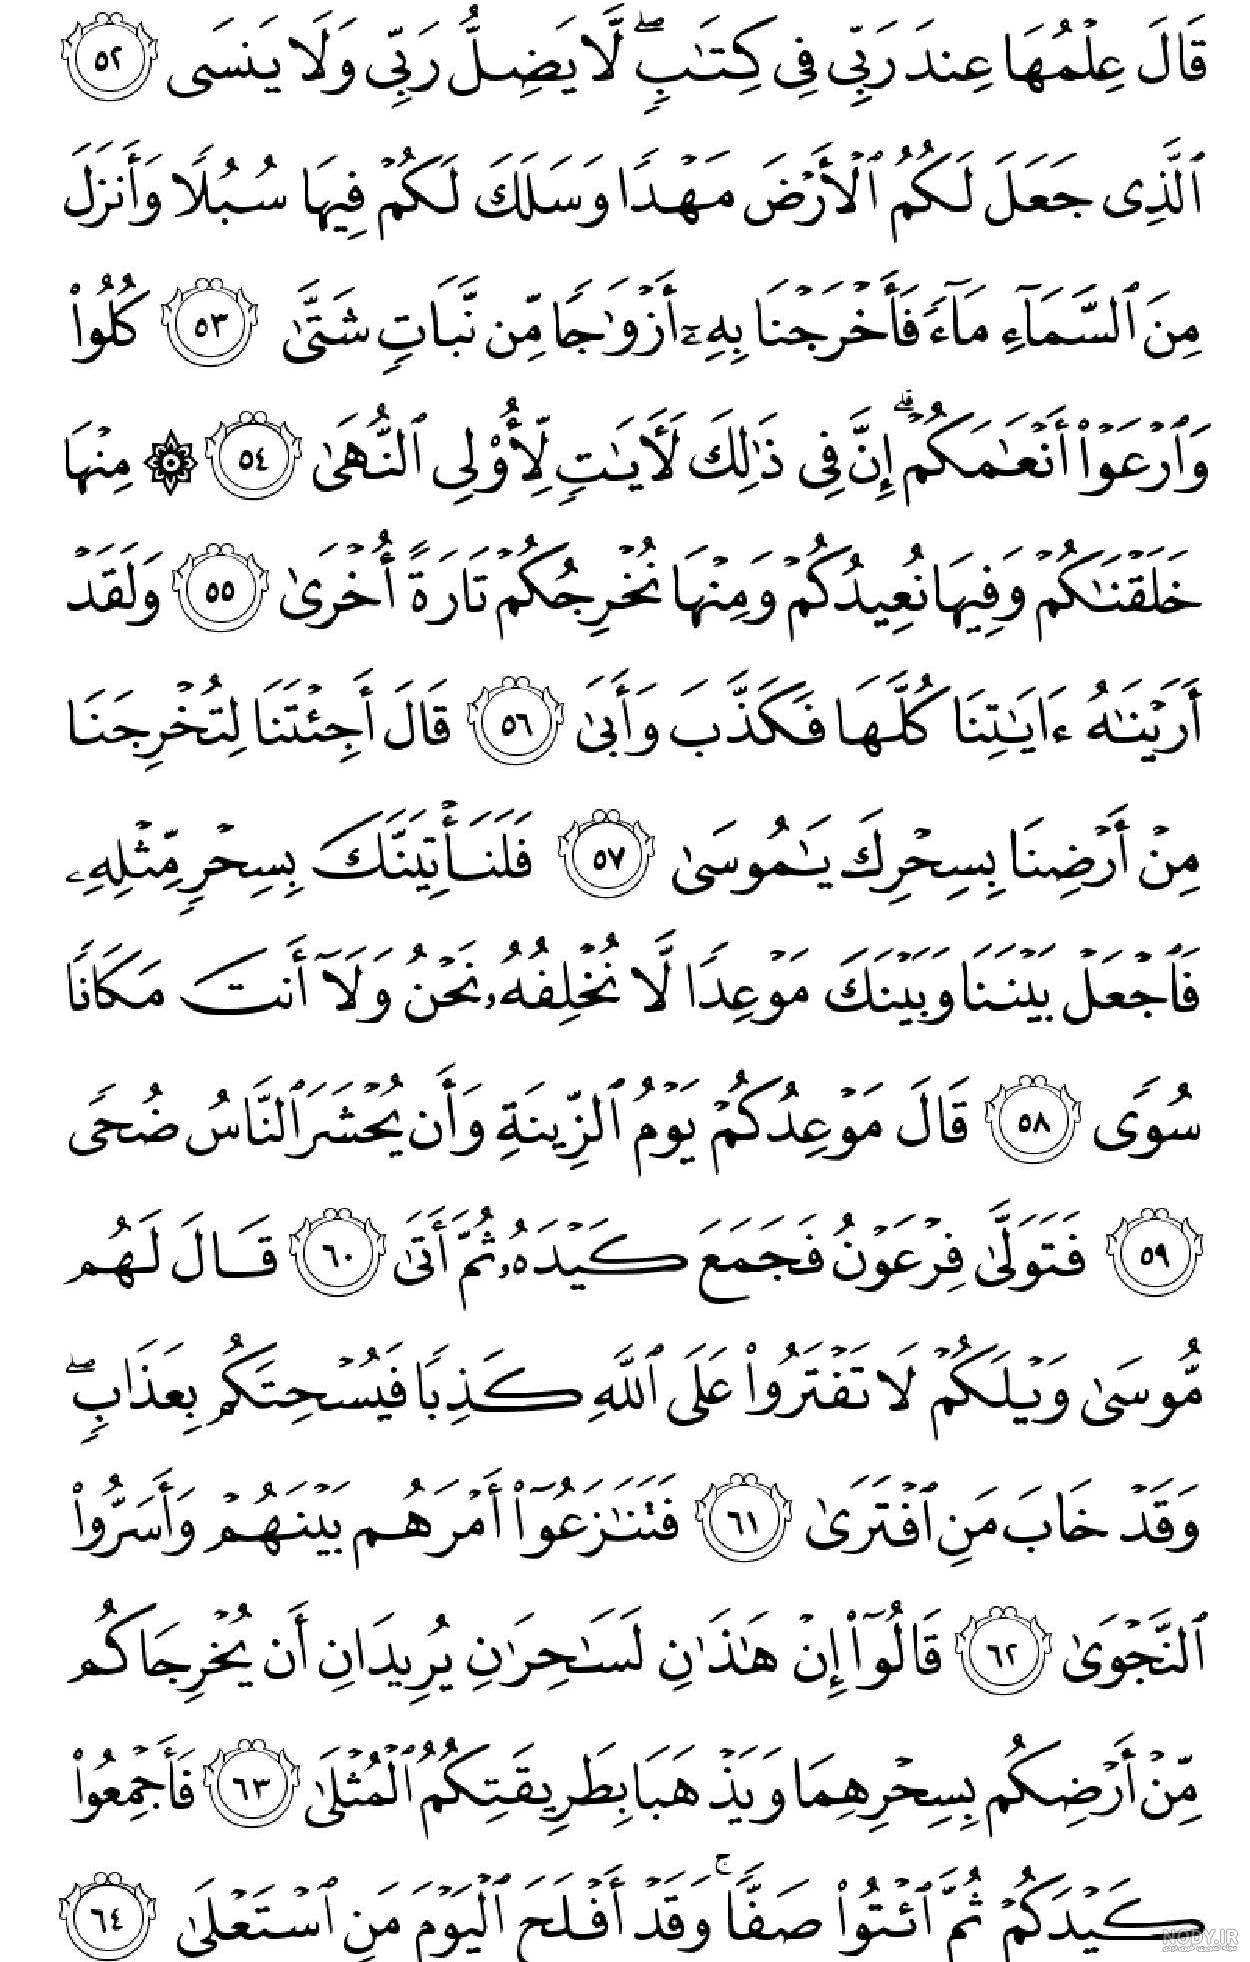 قَالَ عِلْمُهَا عِندَ رَبِّى فِى كِتَٰبٍۢ ۖ لَّا يَضِلُّ رَبِّى وَلَا يَنسَى ٥٢
ٱلَّذِى جَعَلَ لَكُمُ ٱلْأَرْضَ مَهْدًا وَسَلَكَ لَكُمْ فِيهَا سُبُلًا وَأَنزَلَ
مِنَ ٱلسَّمَآءِ مَآءً فَأَخْرَجْنَا بِهِۦٓ أَزْوَٰجًا مِّن نَّبَاتٍ شَتَّىٰ ٥٣ كُلُوا۟
وَٱرْعَوْا۟ أَنْعَٰمَكُمْ ۗ إِنَّ فِى ذَٰلِكَ لَأَيَٰتٍ لِّأُو۟لِى ٱلنُّهَىٰ ٥٤ ۞ مِنْهَا
خَلَقْنَٰكُمْ وَفِيهَا نُعِيدُكُمْ وَمِنْهَا نُخْرِجُكُمْ تَارَةً أُخْرَىٰ ٥٥ وَلَقَدْ
أَرَيْنَٰهُ ءَايَٰتِنَا كُلَّهَا فَكَذَّبَ وَأَبَىٰ ٥٦ قَالَ أَجِئْتَنَا لِتُخْرِجَنَا
مِنْ أَرْضِنَا بِسِحْرِكَ يَٰمُوسَىٰ ٥٧ فَلَنَأْتِيَنَّكَ بِسِحْرٍ مِّثْلِهِۦ
فَٱجْعَلْ بَيْنَنَا وَبَيْنَكَ مَوْعِدًا لَّا نُخْلِفُهُۥ نَحْنُ وَلَآ أَنتَ مَكَانًا
سُوًى ٥٨ قَالَ مَوْعِدُكُمْ يَوْمُ ٱلزِّينَةِ وَأَن يُحْشَرَ ٱلنَّاسُ ضُحًى
٥٩ فَتَوَلَّىٰ فِرْعَوْنُ فَجَمَعَ كَيْدَهُۥ ثُمَّ أَتَىٰ ٦٠ قَالَ لَهُم
مُّوسَىٰ وَيْلَكُمْ لَا تَفْتَرُوا۟ عَلَى ٱللَّهِ كَذِبًا فَيُسْحِتَكُم بِعَذَابٍ ۖ
وَقَدْ خَابَ مَنِ ٱفْتَرَىٰ ٦١ فَتَنَٰزَعُوٓا۟ أَمْرَهُم بَيْنَهُمْ وَأَسَرُّوا۟
ٱلنَّجْوَىٰ ٦٢ قَالُوٓا۟ إِنْ هَٰذَٰنِ لَسَٰحِرَٰنِ يُرِيدَانِ أَن يُخْرِجَاكُم
مِّنْ أَرْضِكُم بِسِحْرِهِمَا وَيَذْهَبَا بِطَرِيقَتِكُمُ ٱلْمُثْلَىٰ ٦٣ فَأَجْمِعُوا۟
كَيْدَكُمْ ثُمَّ ٱئْتُوا۟ صَفًّا ۚ وَقَدْ أَفْلَحَ ٱلْيَوْمَ مَنِ ٱسْتَعْلَىٰ ٦٤
NODY.IR